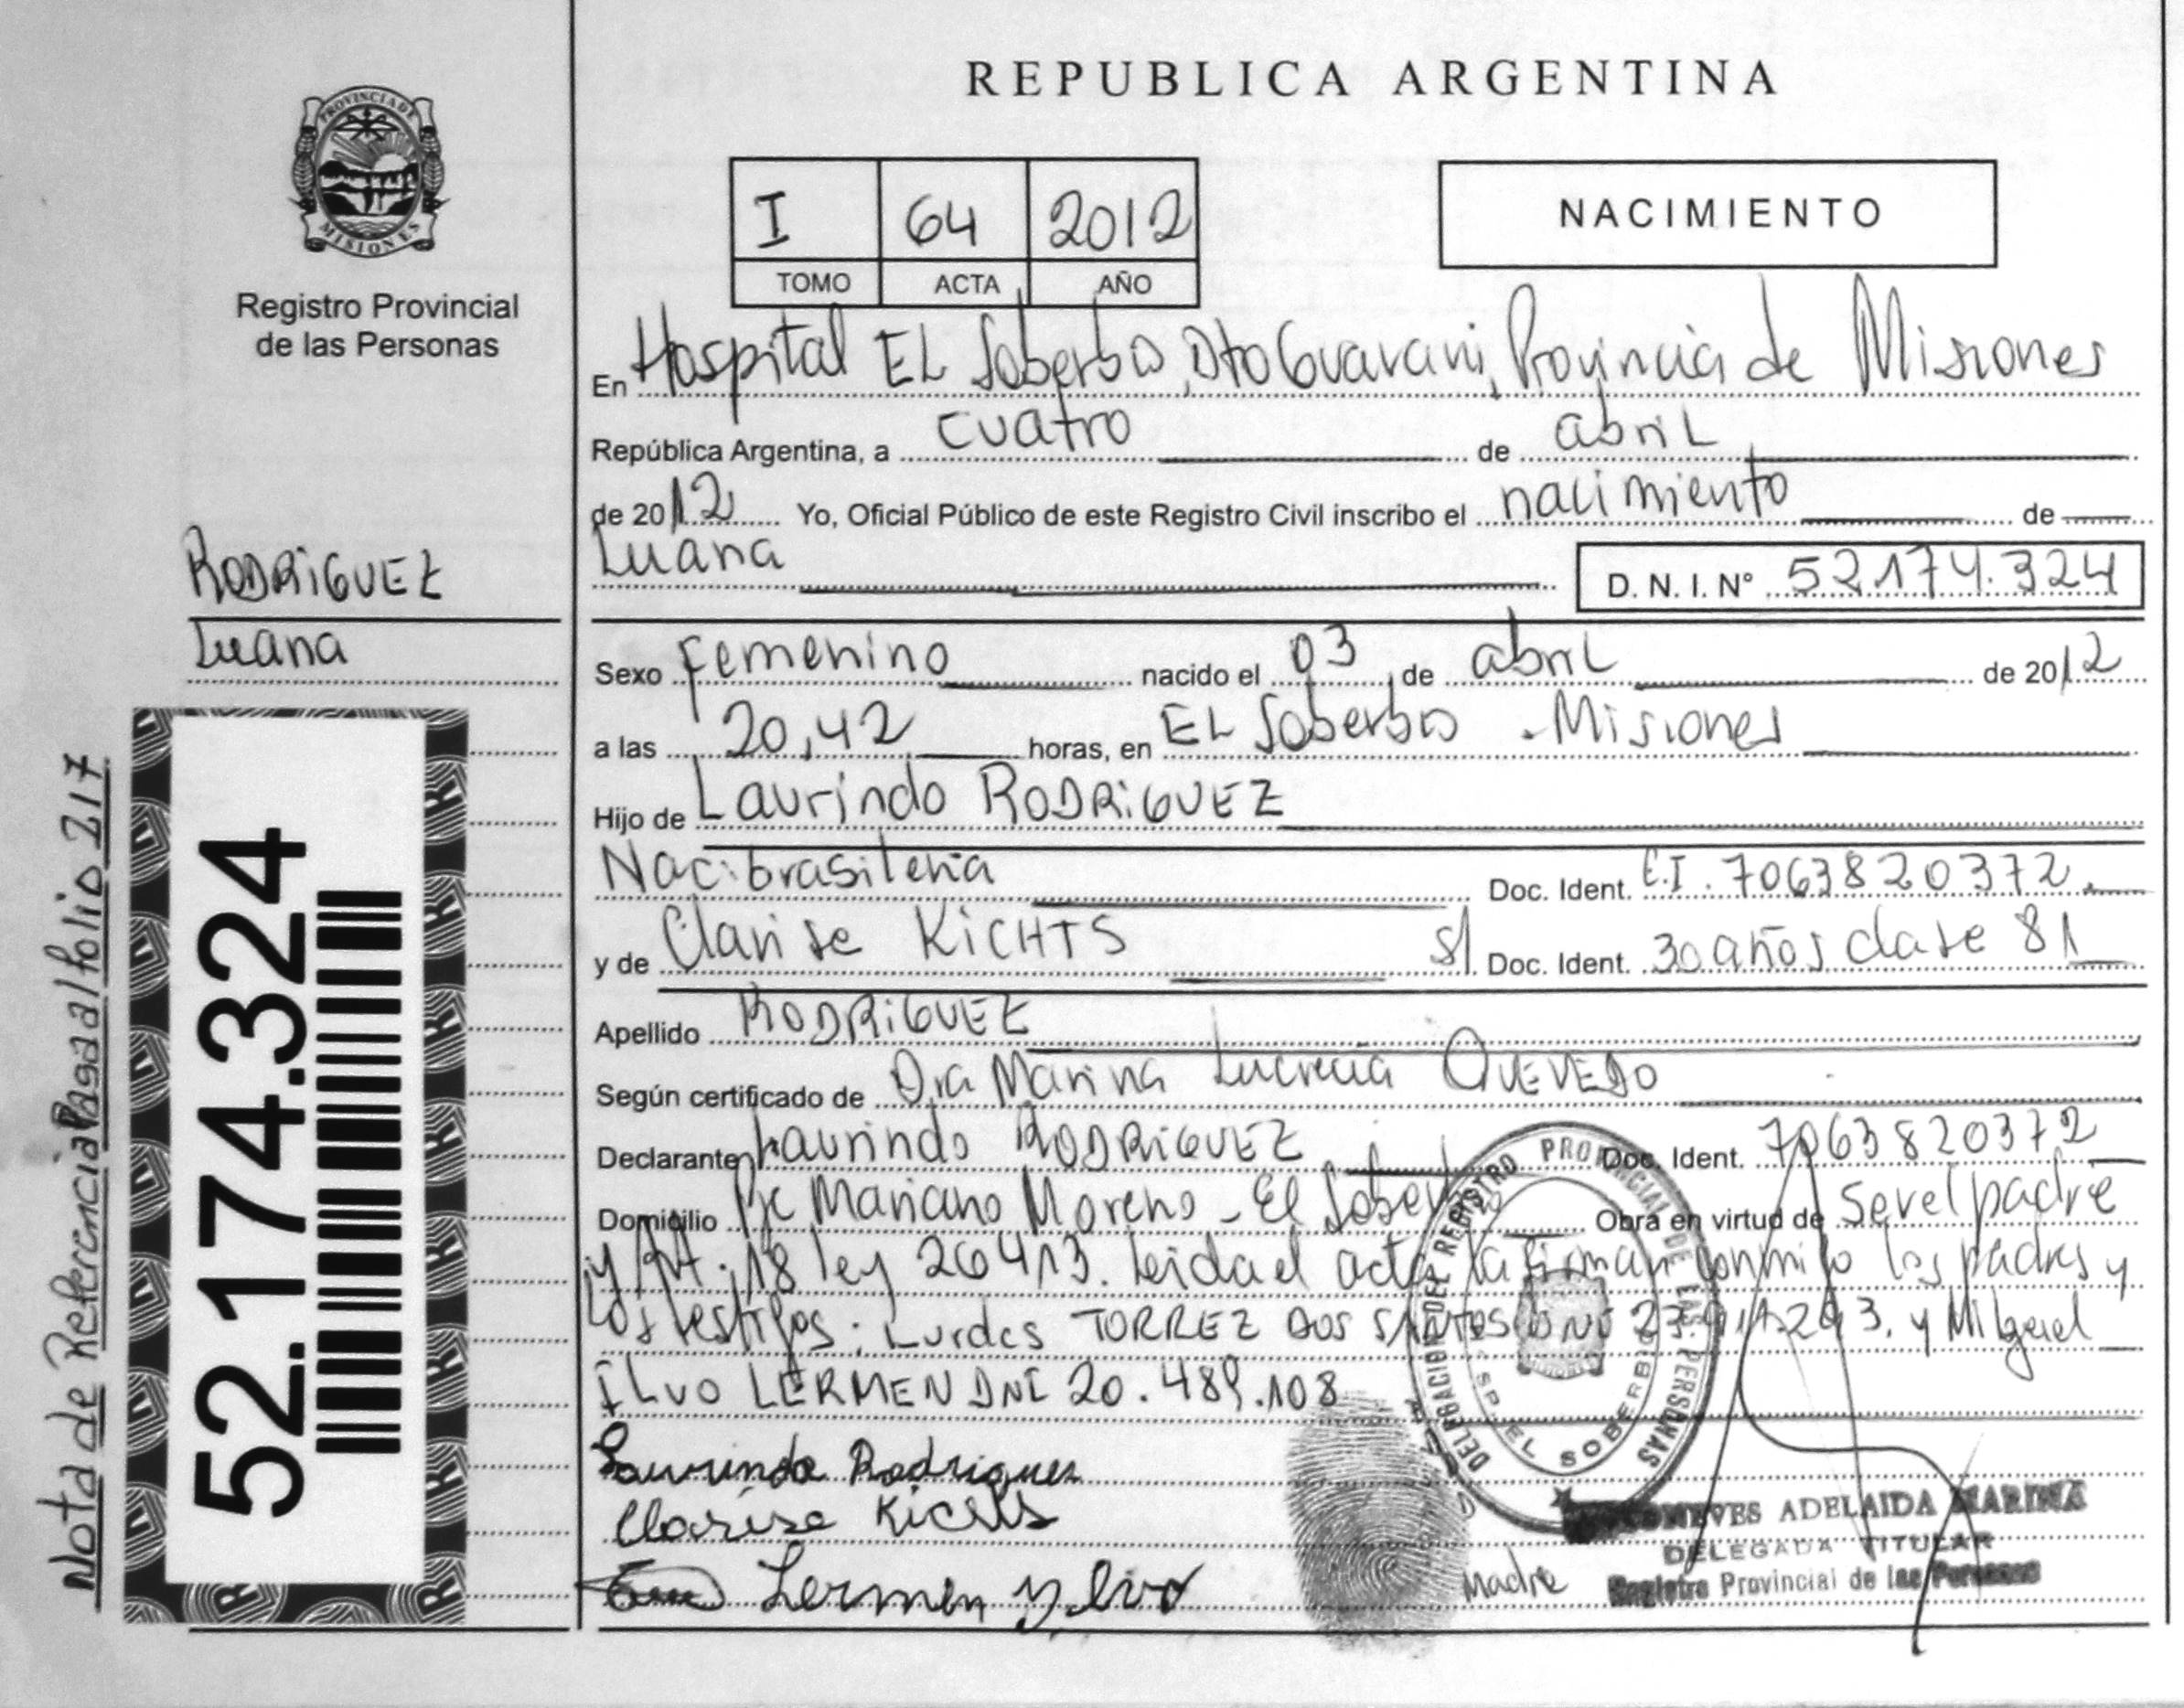 REPUBLICA ARGENTINA
PROVINCIA DE
MISIONES
Registro Provincial
de las Personas
I 64 2012
TOMO ACTA AÑO
NACIMIENTO
En Hospital EL Soberbio, Dto Guarani, Provincia de Misiones
República Argentina, a cuatro de abril
de 2012 Yo, Oficial Público de este Registro Civil inscribo el nacimiento de
Luana
D. N. I. N° 52174.324
RODRIGUEZ
Luana
Sexo femenino nacido el 03 de abril de 2012
a las 20,42 horas, en EL Soberbio - Misiones
Hijo de Laurindo RODRIGUEZ
Nac: brasileña Doc. Ident. C.I. 7063820372.
y de Clarise KICHTS S/ Doc. Ident. 30 años clase 81
Apellido RODRIGUEZ
Según certificado de Dra Marina Lucrecia QUEVEDO
Declarante Laurindo RODRIGUEZ Doc. Ident. 7063820372
Domicilio Pje Mariano Moreno - El Soberbio Obra en virtud de ser el padre
y Art. 18 ley 26413. Leida el acta la firman conmigo los padres y
los testigos: Lurdes TORREZ DOS SANTOS DNI y Miguel
ILVO LERMEN DNI 20.489.108
Laurindo Rodrigues
Clarise Kichts
Lermen Ylvo
Madre
DELEGACION DEL REGISTRO PROVINCIAL DE LAS PERSONAS
EL SOBERBIO
NEVES ADELAIDA MARINA
DELEGADA TITULAR
Registro Provincial de las Personas
52.174.324
Nota de Referencia Pasa al folio 217